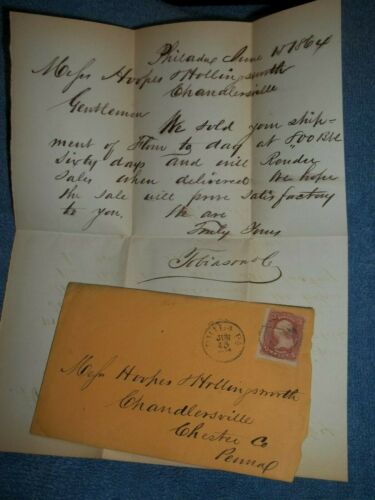 Philada June 15 1864
Mess Hoopes & Hollingsworth
Chandlersville
Gentlemen
We sold your ship-
ment of Flour to day at 800 Bbl
sixty days and will Render
Sales when delivered We hope
the sale will prove satisfactory
to you.
We are
Truly Yours
PHILA PA
JUN
15
Mess Hoopes & Hollingsworth
Chandlersville
Chester Co
Penna